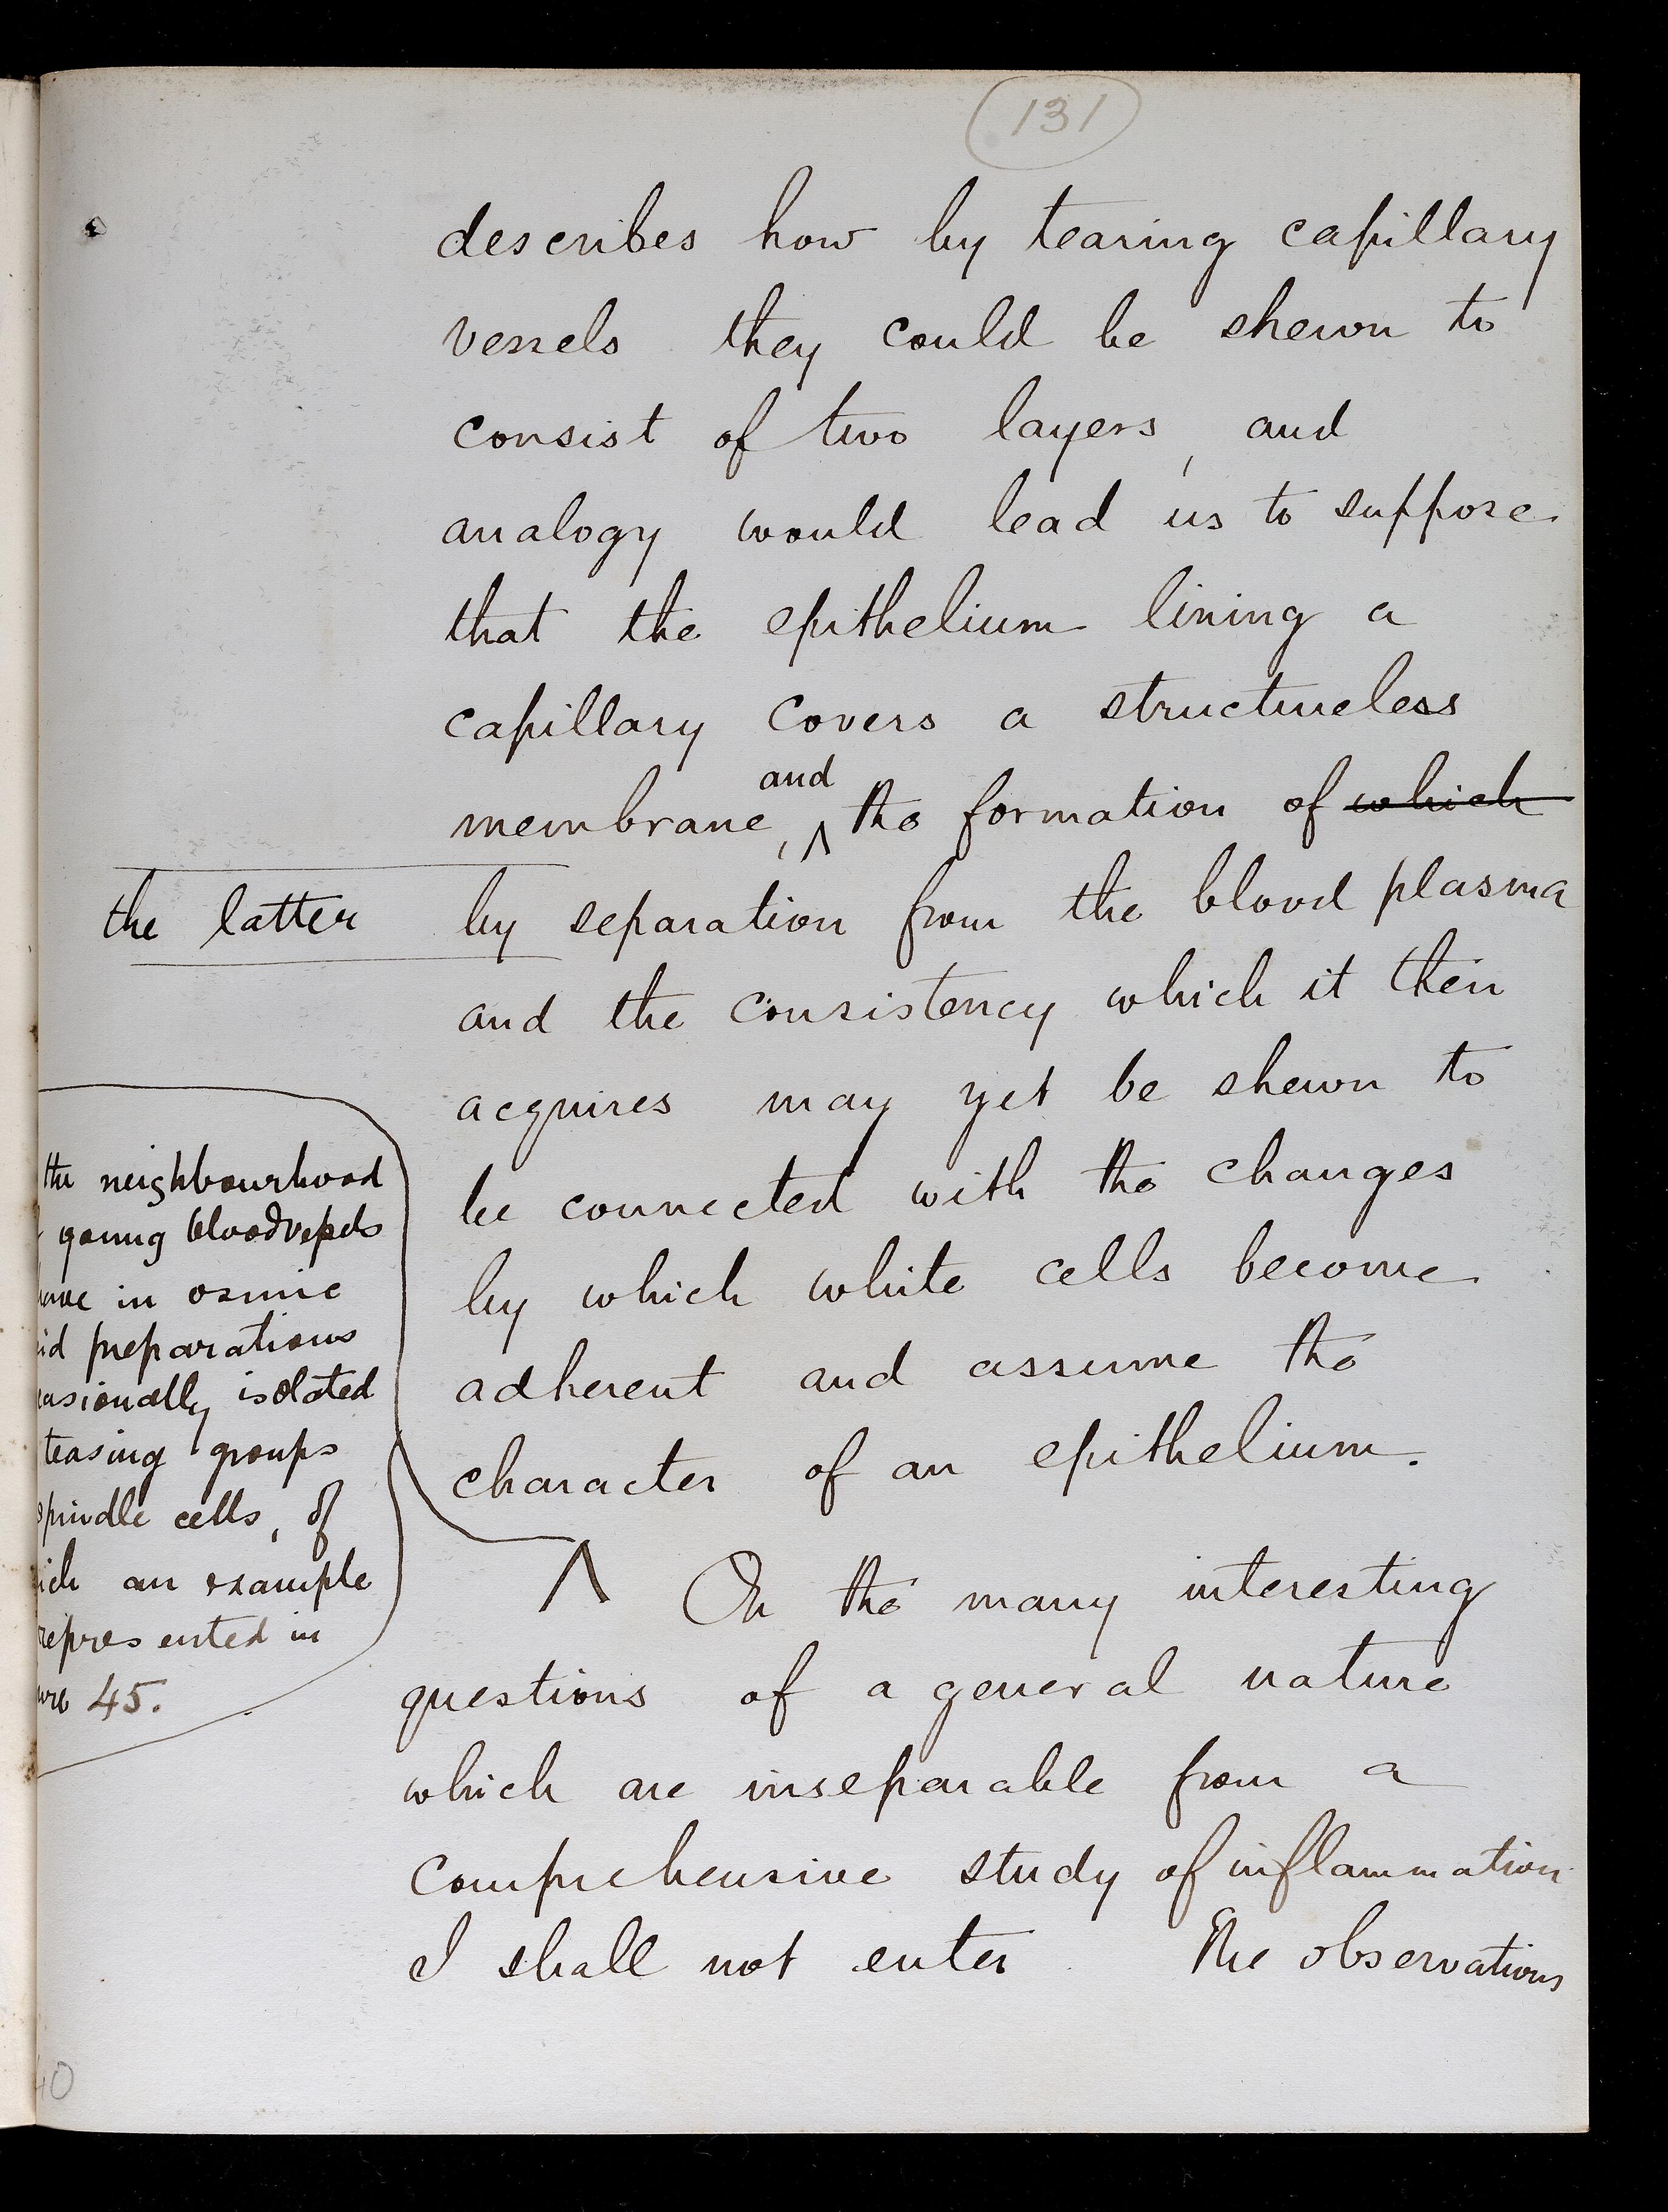 131
describes how by tearing capillary
vessels they could be shewn to
consist of two layers, and
analogy would lead us to suppose
that the epithelium lining a
capillary covers a structureless
and
membrane, ʌ the formation of which
the latter by separation from the blood plasma
and the consistency which it then
acquires may yet be shewn to
be connected with the changes
by which white cells become
adherent and assume the
character of an epithelium.
the neighbourhood
young bloodvessels
in osmic
preparations
isolated
teasing groups
spindle cells, of
an example
represented in
45.
ʌ On the many interesting
questions of a general nature
which are inseparable from a
comprehensive study of inflammation
I shall not enter. The observations